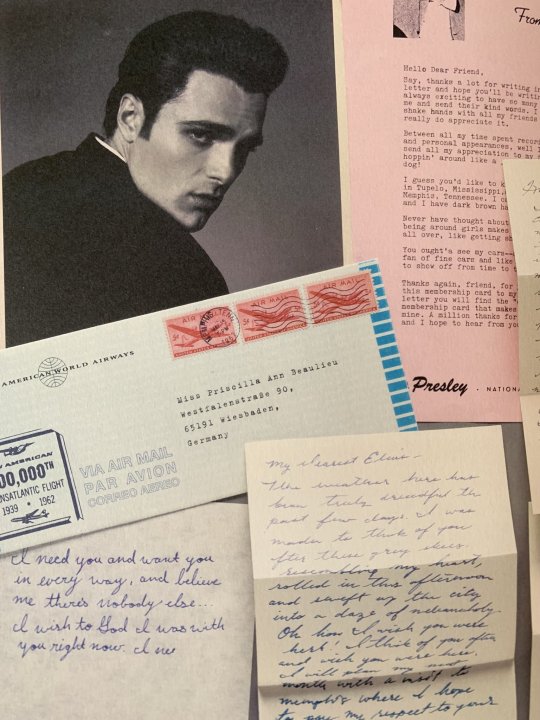 From
Hello Dear Friend,
Say, thanks a lot for writing in
letter and hope you'll be writin
always exciting to have so many
me and send their kind words. I
shake hands with all my friends
really do appreciate it.
Between all my time spent record
and personal appearances, well I
send all my appreciation to my
hoppin' around like a
dog!
I guess you'd like to k
in Tupelo, Mississippi,
Memphis, Tennessee. I
and I have dark brown ha
Never have thought about
being around girls makes
all over, like getting sh
You ought'a see my cars--
fan of fine cars and like
to show off from time to t
Thanks again, friend, for
this membership card to my
letter you will find the "
membership card that makes
mine. A million thanks for
and I hope to hear from yo
Presley · NATION
AMERICAN WORLD AIRWAYS
AIR MAIL
AIR MAIL
AIR MAIL
Miss Priscilla Ann Beaulieu
Westfalenstraße 90,
65191 Wiesbaden,
Germany
AMERICAN
00,000TH
TRANSATLANTIC FLIGHT
1939 1962
VIA AIR MAIL
PAR AVION
CORREO AEREO
I need you and want you
in every way, and believe
me there's nobody else...
I wish to God I was with
you right now. I ne
My dearest Elvis-
The weather here has
been truly dreadful the
past few days. I was
made to think of you
after these grey skies.
Resembling my heart,
rolled in this afternoon
and swept up the city
into a daze of melancholy.
Oh how I wish you were
here! I think of you often
and wish you were here.
I will plan my next
month with a visit to
Memphis where I hope
to pay my respect to your